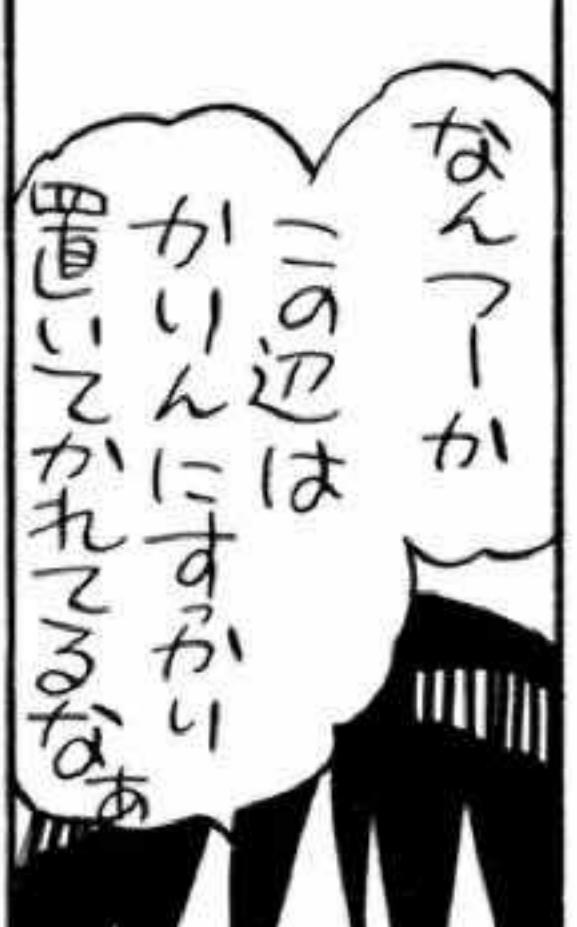 なんつーか
この辺は
かりんにすっかり
置いてかれてるなぁ